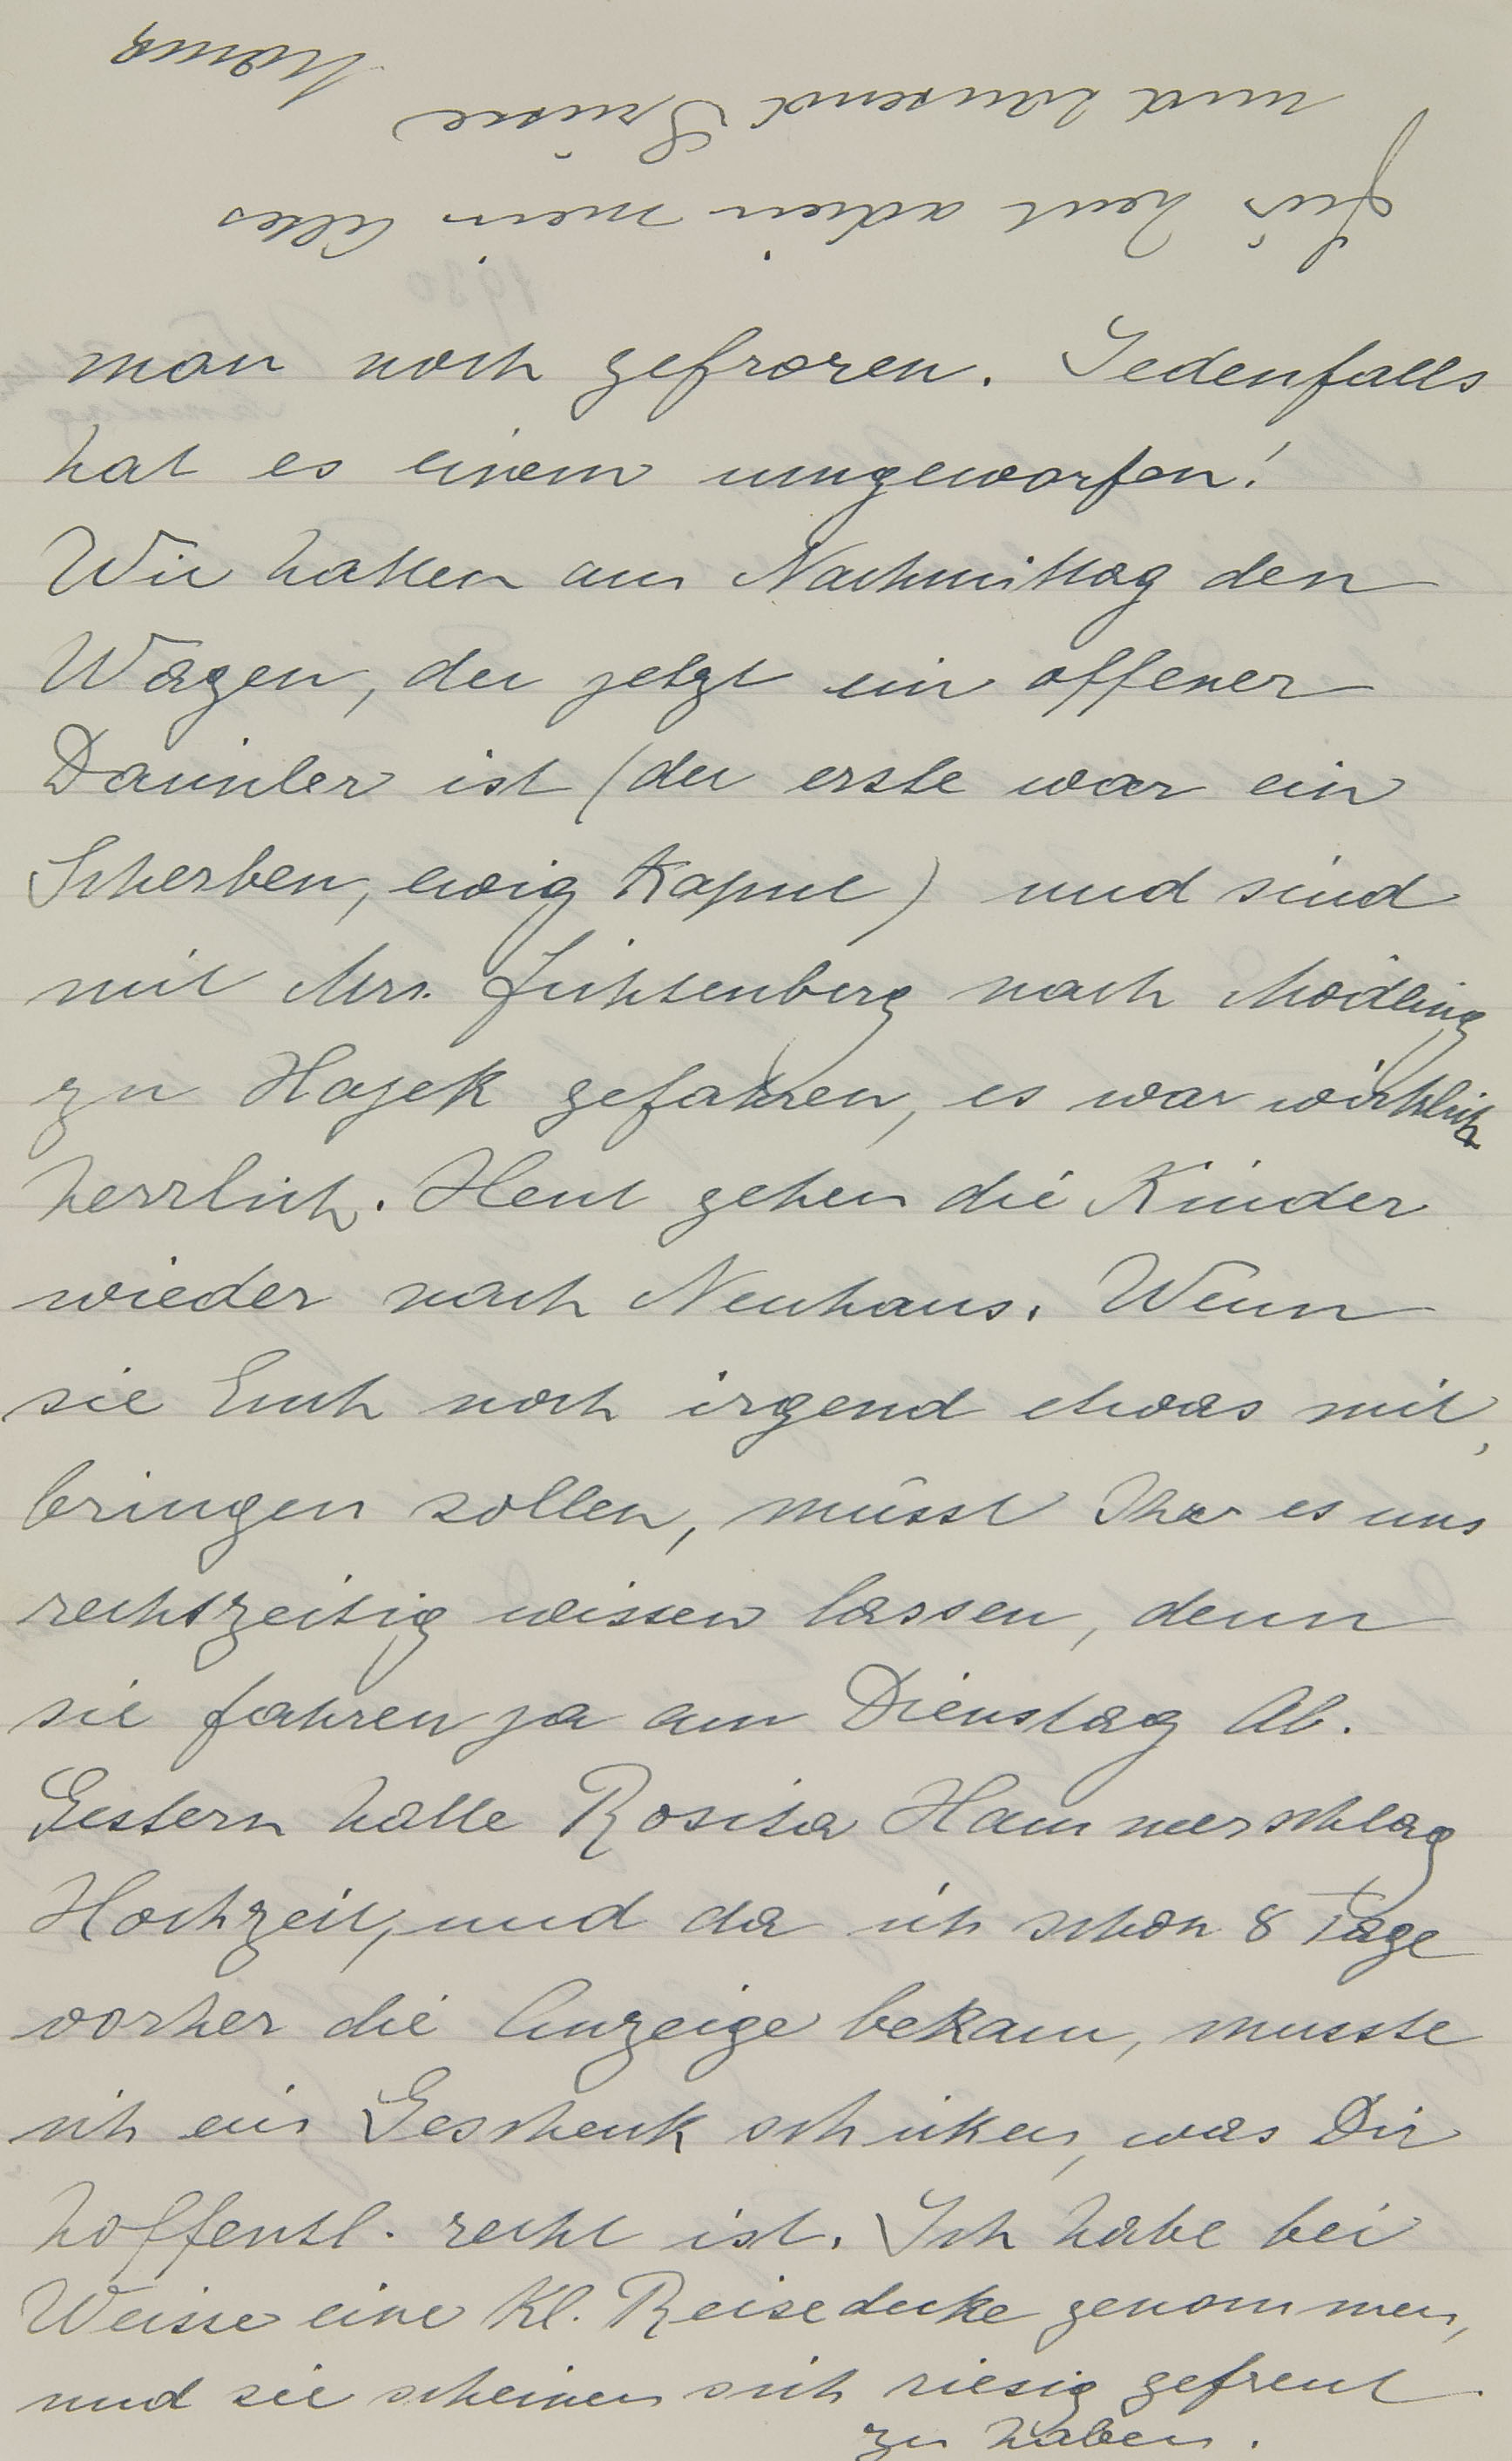 man noch gefroren. Jedenfalls
hat es einem umgeworfen!
Wir hatten am Nachmittag den
Wagen, der jetzt ein offener
Daimler ist (der erste war ein
Scherben, ewig kaput) und sind
mit Mrs. Lichtenberg nach Mödling
zu Hajek gefahren, es war wirklich
herrlich. Heut gehen die Kinder
wieder nach Neuhaus. Wenn
sie Euch noch irgend etwas mit
bringen sollen, müsst Ihr es uns
rechtzeitig wissen lassen, denn
sie fahren ja am Dienstag ab.
Gestern hatte Rosita Hammerschlag
Hochzeit, und da ich schon 8 Tage
vorher die Anzeige bekam, musste
ich ein Geschenk schicken, was Dir
hoffentl. recht ist. Ich habe bei
Weisse eine kl. Reisedecke genommen,
und sie scheinen sich riesig gefreut
zu haben.
Für heut adieu mein Altes
und tausend Grüsse